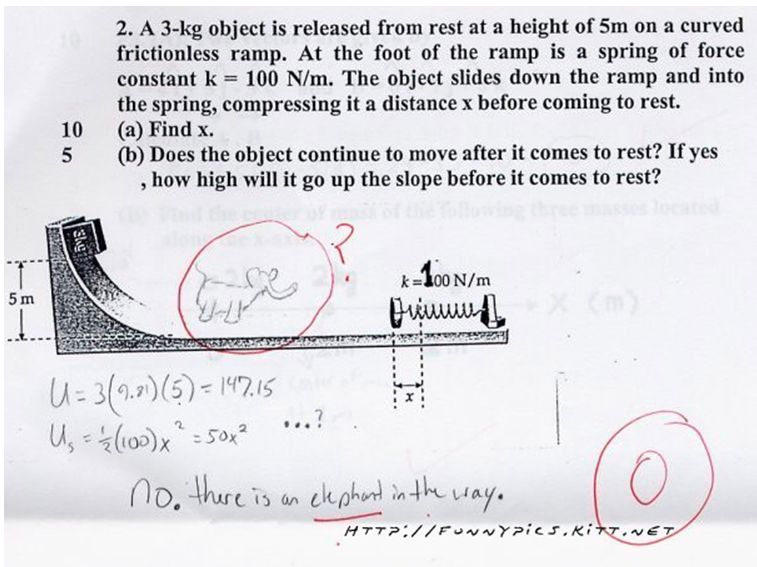 2. A 3-kg object is released from rest at a height of 5m on a curved
frictionless ramp. At the foot of the ramp is a spring of force
constant k = 100 N/m. The object slides down the ramp and into
the spring, compressing it a distance x before coming to rest.
10 (a) Find x.
5 (b) Does the object continue to move after it comes to rest? If yes
, how high will it go up the slope before it comes to rest?
3kg
?
k = 100 N/m
5 m
x
U = 3(9.81)(5) = 147.15
Us = ½(100)x² = 50x² ...?
no. there is an elephant in the way.
0
HTTP://FUNNYPICS.KITT.NET